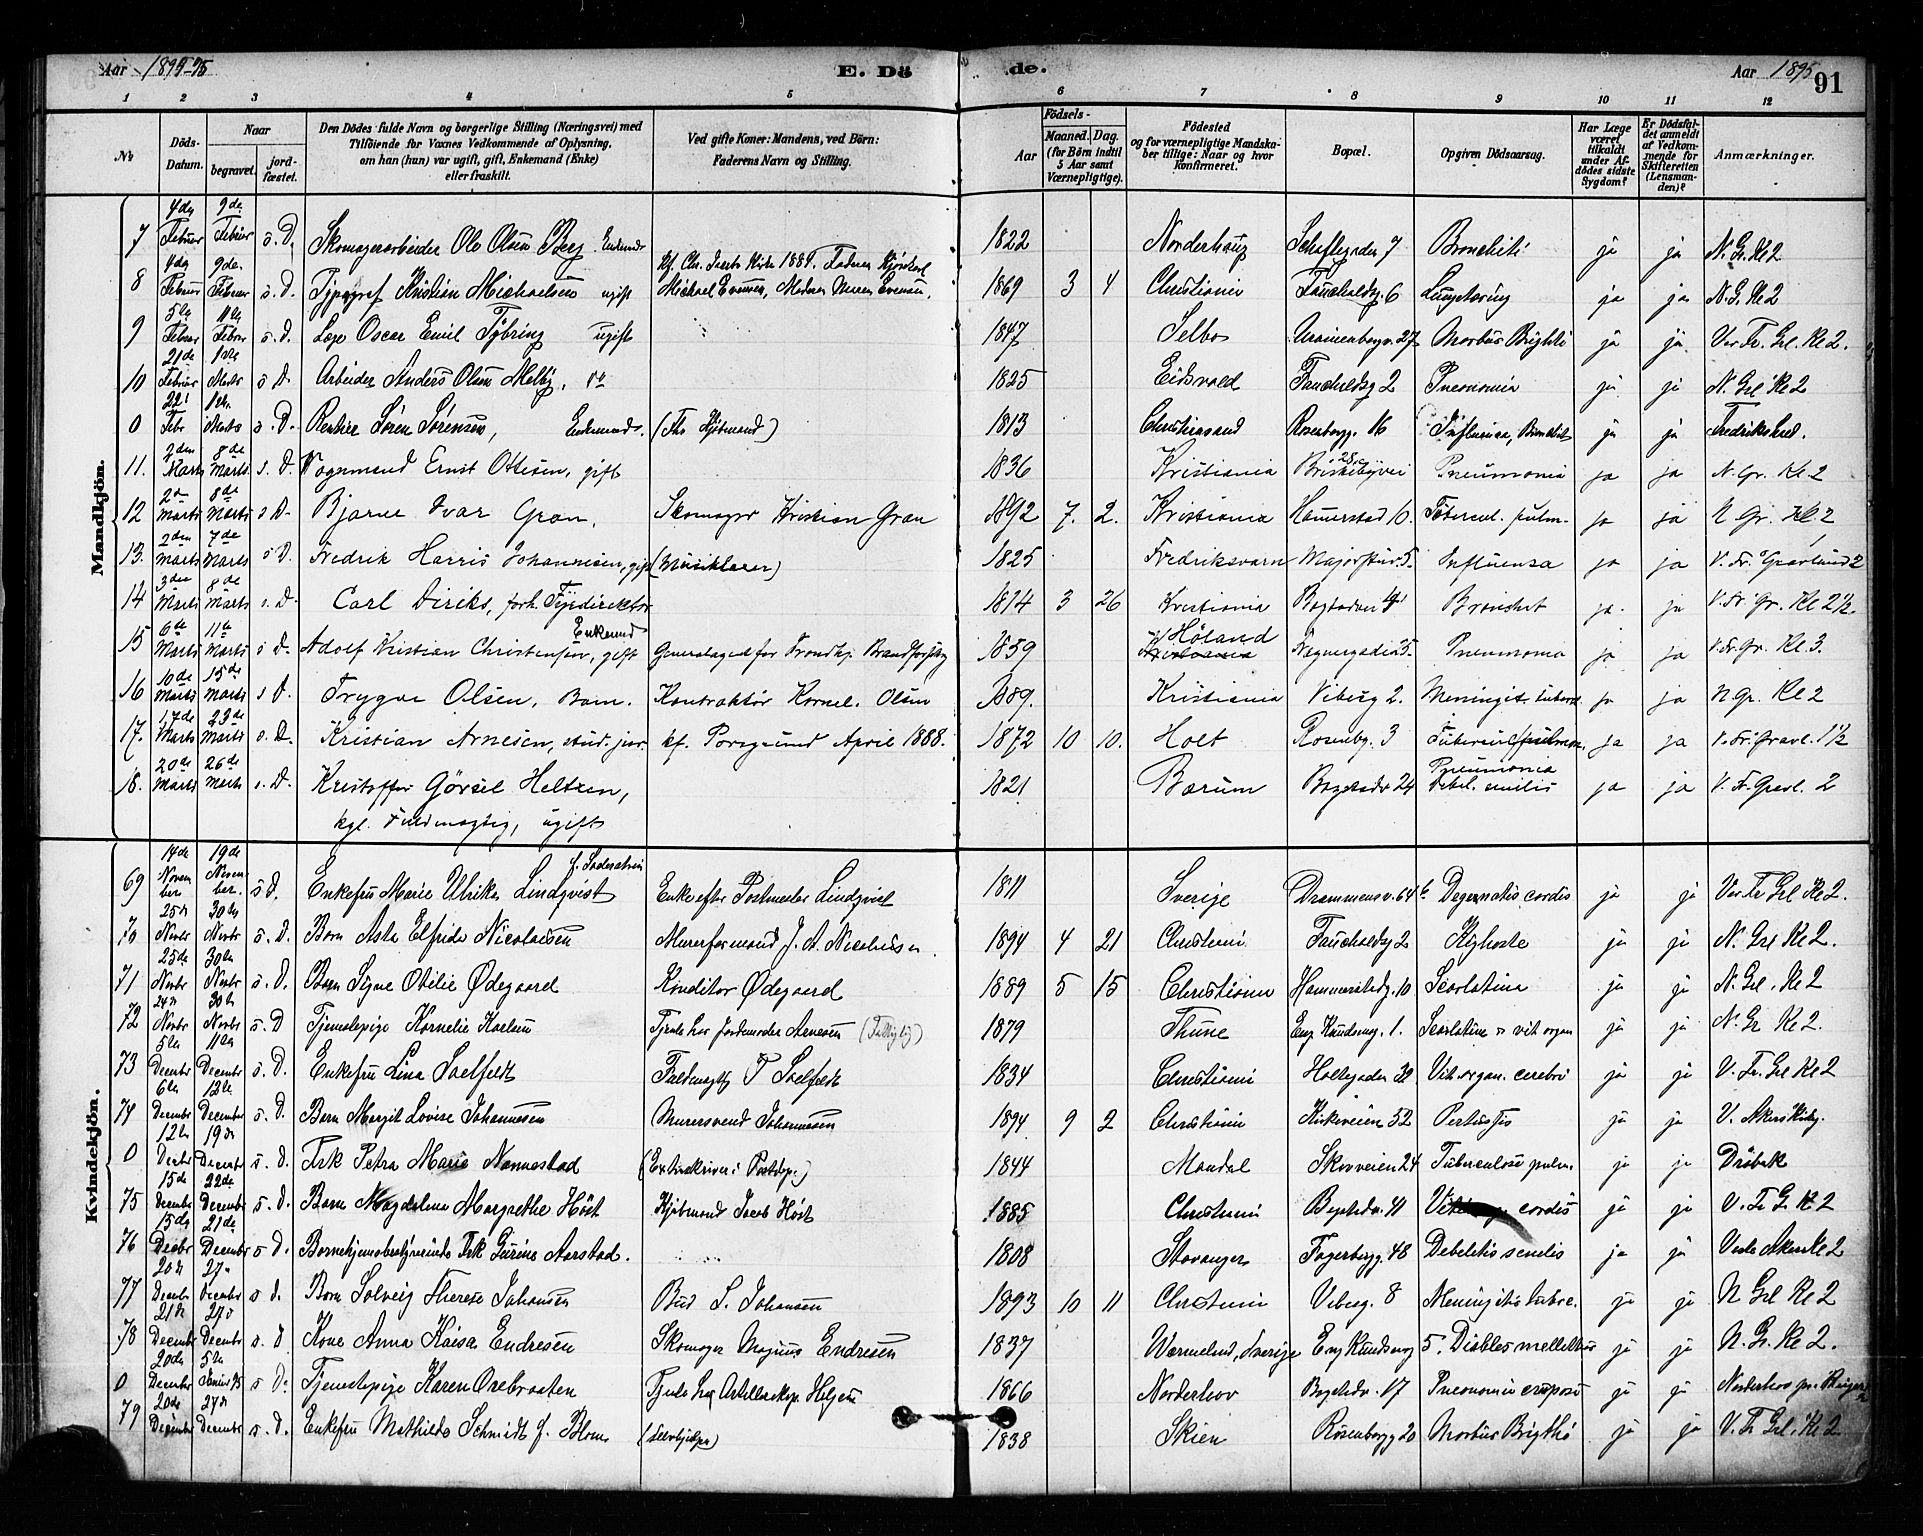 Aar 1894-95 E. Döde. Aar 1895 91
1 2 3 4 5 6 7 8 9 10 11 12
№ Döds-Datum. Naar begravet. jordfæstet. Den Dödes fulde Navn og borgerlige Stilling (Næringsvei) med Tilföiende for Voxnes Vedkommende af Oplysning, om han (hun) var ugift, gift, Enkemand (Enke) eller fraskilt. Ved gifte Koner: Mandens, ved Börn: Faderens Navn og Stilling. Aar Födsels- Maaned. Dag. (for Börn indtil 5 Aar samt Værnepligtige). Födested og for værnepligtige Mandskaber tillige: Naar og hvor Konfirmeret. Bopæl. Opgiven Dödsaarsag. Har Læge været tilkaldt under Afdödes sidste Sygdom? Er Dödsfaldet anmeldt af Vedkommende for Skifteretten (Lensmanden)? Anmærkninger.
Mandkjön.
7 4de Februar 9de Februar s. D. Skomagerarbeider Ole Olsen Berg 1822 Norderhaug 7 Bronchiti ja ja N. Gr. Kl 2
8 4de Februar 9de Februar s. D. Typograf Kristian Michaelsen ugift Michael Evensen, 1869 3 4 Christiania Fauchaldsg. 6 ja ja N. G. Kl 2
9 5te Februar 11te Februar s. D. Læge Oscar Emil Tybring ugift 1847 Selbo 27 Morbus Brighti ja ja Vor Fr. Grl. Kl 2.
10 21de Februar 1ste Marts s. D. Arbeider Anders Olsen Melby, 1825 Eidsvold Fauchaldsg 2 Pneonomia ja ja N. Grl Kl 2
0 22 Febr 1ste Marts s. D. Rentier Sören Sörensen, Enkemand. (Fhv Kjöbmand) 1813 Christiansand Rosenborgg. 16 Influensa, Bronchit ja ja Fredrikshald.
11. 2den Marts 8de Marts s. D. Vognmand Ernst Ottesen, gift 1836 Kristiania Briskebyvei 28. Pneumonia ja ja N. Gr. Kl. 2
12 2d Marts 8de Marts s. D. Bjarne Ivar Gran, Skomager Kristian Gran 1892 7. 2. Kristiania 10. Tubercul. pulm. ja ja N Gr. Kl 2
13. 2den Marts 7de Marts s. D. Fredrik Harris Johannesen, gift (Musiklærer) 1825 Fredriksværn Majorstuv. 5. Influensa ja ja V. Fr. Gravlund 2
14 3die Marts 8de Marts s. D. Carl Diriks, forh. Fyrdirektör Enkemd 1814 3 26 Kristiania Bronchit ja ja V. Fr. Gr. Kl 2 1/2
15 6te Marts 11te Marts s. D. Adolf Kristian Christensen, gift Generalagent for Trondhj. Brandforsikrg 1859 Höland Pneumonia ja ja V. Fr. Gr. Kl. 3.
16 10de Marts 15de Marts s. D. Trygve Olsen, Barn. Kontraktör Kornel. Olsen 1889. Kristiania Vibesg 2. Meningit. tuberc. ja ja N Gr. Kl 2
17. 17de Marts 23de Marts s. D. Kristian Arnesen, stud. jur. kf. Porsgrund April 1888. 1872 10 10. Holt Rosenbg. 3 Tubercul pulmon. ja ja V. Fr. Gravl. 1 1/2
18. 20de Marts 26de Marts s. D. Kristoffer Görvel Heltzen, 1821 Bærum Bogstadv 24 Pneumonia Debil. senilis ja ja V. Fr. Gravl. 2
kgl. Fuldmægtig, ugift
Kvindekjön.
69 14de November 19de November s. D. Enkefru Marie Ulrike Lindqvist Enke efter Postmester Lindqvist 1811 Sverige Drammensv. 64 b Degeneratis cordis ja ja Vor Fr Grl Kl 2.
70 25de Novbr 30te Novbr s. D. Barn Asta Elfrida Nicolaisen Murerformand J. A. Nicolaisen 1894 4 21 Christiania Fauchaldsg 2 Kighoste ja ja N. Grl Kl 2.
71 25de Novbr 30te Novbr s. D. Barn Signe Otilie Ødegaard Konditor Ødegaard 1889 5 15 Christiania Hammerstadg. 10 Scarlatina ja ja N. Grl. Kl 2
72 24de Novbr 30te Novbr s. D Tjenestepige Kornelie Karlsen Tjente hos Jordemoder Arnesen 1879 Thune Eug Kundsensg. 1. Scarlatina vit organ ja ja N. Gr Kl 2.
73 5te December 11te December s. D. Enkefru Lina Saelfeldt Fuldmægtig P Saelfeldt 1834 Christiania Holtegaden Vit. organ. cerebri ja ja V. Fr. Grl Kl 2
74 6te December 12te December s. D. Barn Margit Lovise Johannessen Murersvend Johannessen 1894 9 2 Christiania Kirkeveien 52 Pertussis ja ja V. Akers Kirkg.
0 12te Decbr 19de December s. D. Frk Petra Marie Nannestad (Extraskriver i Postdep.) 1844 Mandal Skovveien 24 Tuberculose pulm. ja ja Dröbak
75 15de December 22de December s. D. Barn Magdalena Margrethe Höst Kjöbmand Jacob Höst 1885 Christiania Bogstadv. 41 cordis ja ja V. Fr G Kl 2
76 15de Decbr 21de December s. D. Barnehjemsbestyrerinde Frk Gurine Aarstad. 1808 Stavanger Fagerborgg. 48 Debeletis senelis ja ja Vestre Aker Kl 2
77 20de December 27 December s. D. Barn Solveig Therese Johansen Bud S. Johansen 1893 10 11 Christiania Vibesg. 8 Meningitis tubre. ja ja N Grl Kl 2
78 21de December 27d December s. D Kone Anna Kaisa Endresen Skomager Magnus Endresen 1837 Wærmeland, Sverige 5. Diabtes mellettus ja ja N. Gr. Kl 2.
0 20de December 5te Januar 95 s. D. Tjenestepige Karen Orebraaten 1866 Norderhov Bogstadv. 17 Pneonomia cruposa ja ja Norderhov
79 20de December 27de December s. D. Enkefru Mathilde Schmidt f. Blom 1838 Skien Rosenborgg 20 Morbus Brigthi ja ja V. Fr Grl. Kl 2